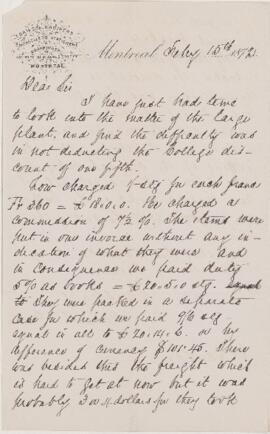 MONTREAL
Montreal Feby 15th 1872
Dear Sir
I have just had time
to look into the matter of the large
plant, and find the difficulty was
in not deducting the College dis-
count of one fifth.
You charged 1 stg for each franc
Fr 360 = £18.0.0. He charged a
commission of 7½ %. The items were
put in our invoice without any in-
dication of what they were and
in consequence we paid duty
5% as books = £20.5.0 stg.
They were packed in a separate
case for which we paid 9/6 stg
equal in all to £20.14.6. or in
difference of currency $101.45. There
was besides this the freight which
is hard to get at now but it was
probably 3 or 4 dollars for they took